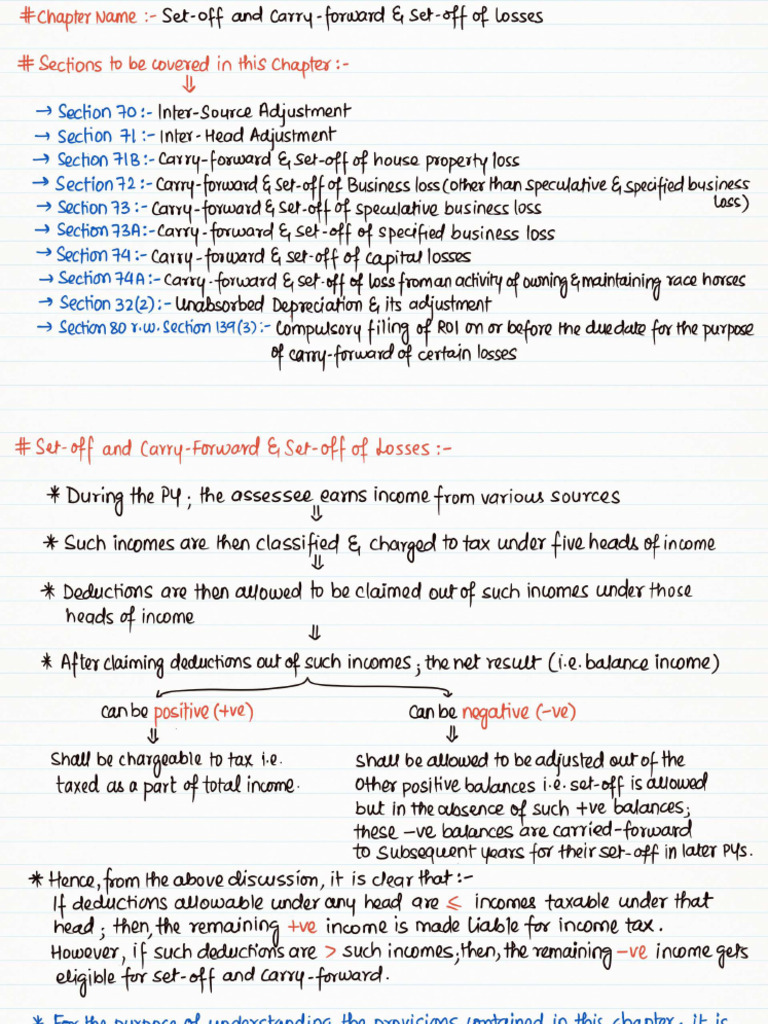 # Chapter Name :- Set-off and Carry-forward & Set-off of Losses
# Sections to be covered in this Chapter :-
⇓
→ Section 70 :- Inter-Source Adjustment
→ Section 71 :- Inter-Head Adjustment
→ Section 71B :- Carry-forward & Set-off of house property loss
→ Section 72 :- Carry-forward & Set-off of Business loss (other than speculative & specified business loss)
→ Section 73 :- Carry-forward & Set-off of speculative business loss
→ Section 73A :- Carry-forward & set-off of specified business loss
→ Section 74 :- Carry-forward & set-off of capital losses
→ Section 74A :- Carry-forward & set-off of loss from an activity of owning & maintaining race horses
→ Section 32(2) :- Unabsorbed Depreciation & its adjustment
→ Section 80 r.w. Section 139(3) :- Compulsory filing of ROI on or before the due date for the purpose
of carry-forward of certain losses
# Set-off and Carry-Forward & Set-off of Losses :-
* During the PY ; the assessee earns income from various sources
⇓
* Such incomes are then classified & charged to tax under five heads of income
⇓
* Deductions are then allowed to be claimed out of such incomes under those
heads of income
⇓
* After claiming deductions out of such incomes ; the net result (i.e. balance income)
can be positive (+ve)
⇓
Shall be chargeable to tax i.e.
taxed as a part of total income.
Can be negative (-ve)
⇓
Shall be allowed to be adjusted out of the
Other positive balances i.e. set-off is allowed
but in the absence of such +ve balances;
these -ve balances are carried-forward
to Subsequent years for their set-off in later PYs.
* Hence, from the above discussion, it is clear that :-
If deductions allowable under any head are ≤ incomes taxable under that
head ; then, the remaining +ve income is made liable for income tax.
However, if such deductions are > such incomes ; then, the remaining -ve income gets
eligible for set-off and carry-forward.
* For the purpose of understanding the provisions contained in this chapter, it is